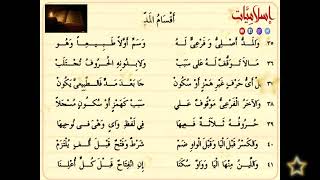 إسلاميات
أَقْسَامُ المَدِّ
٣٥ وَالْمَدُّ أَصْلِيٌّ وَ فَرْعِيٌّ لَهُ وَسَمِّ أَوَّلاً طَبِيعِيّاً وَهُو
٣٦ مَالاَ تَوَقُّفٌ لَهُ عَلَى سَبَبْ وَلاَ بِدُونِهِ الحُرُوفُ تُجْتَلَبْ
٣٧ بَلْ أَيُّ حَرْفٍ غَيْرِ هَمْزٍ أَوْ سُكُونْ جَا بَعْدَ مَدٍّ فَالطَّبِيعِيَّ يَكُونْ
٣٨ وَالآخَرُ الْفَرْعِيُّ مَوْقُوفٌ عَلَى سَبَبْ كَهَمْزٍ أَوْ سُكُونٍ مُسْجَلاَ
٣٩ حُرُوفُهُ ثَلاَثَةٌ فَعِيهَا فِي لَفْظِ وَايٍ وَهْيَ فِي نُوحِيهَا
٤٠ وَالكَسْرُ قَبْلَ الْيَا وَقَبْلَ الْوَاوِ ضَمْ شَرْطٌ وَفَتْحٌ قَبْلَ أَلِفٍ يُلْتَزَمْ
٤١ وَاللِّينُ مِنْهَا الْيَا وَوَاوٌ سُكِّنَا إِنِ انْفِتَاحٌ قَبْلَ كُلٍّ أُعْلِنَا